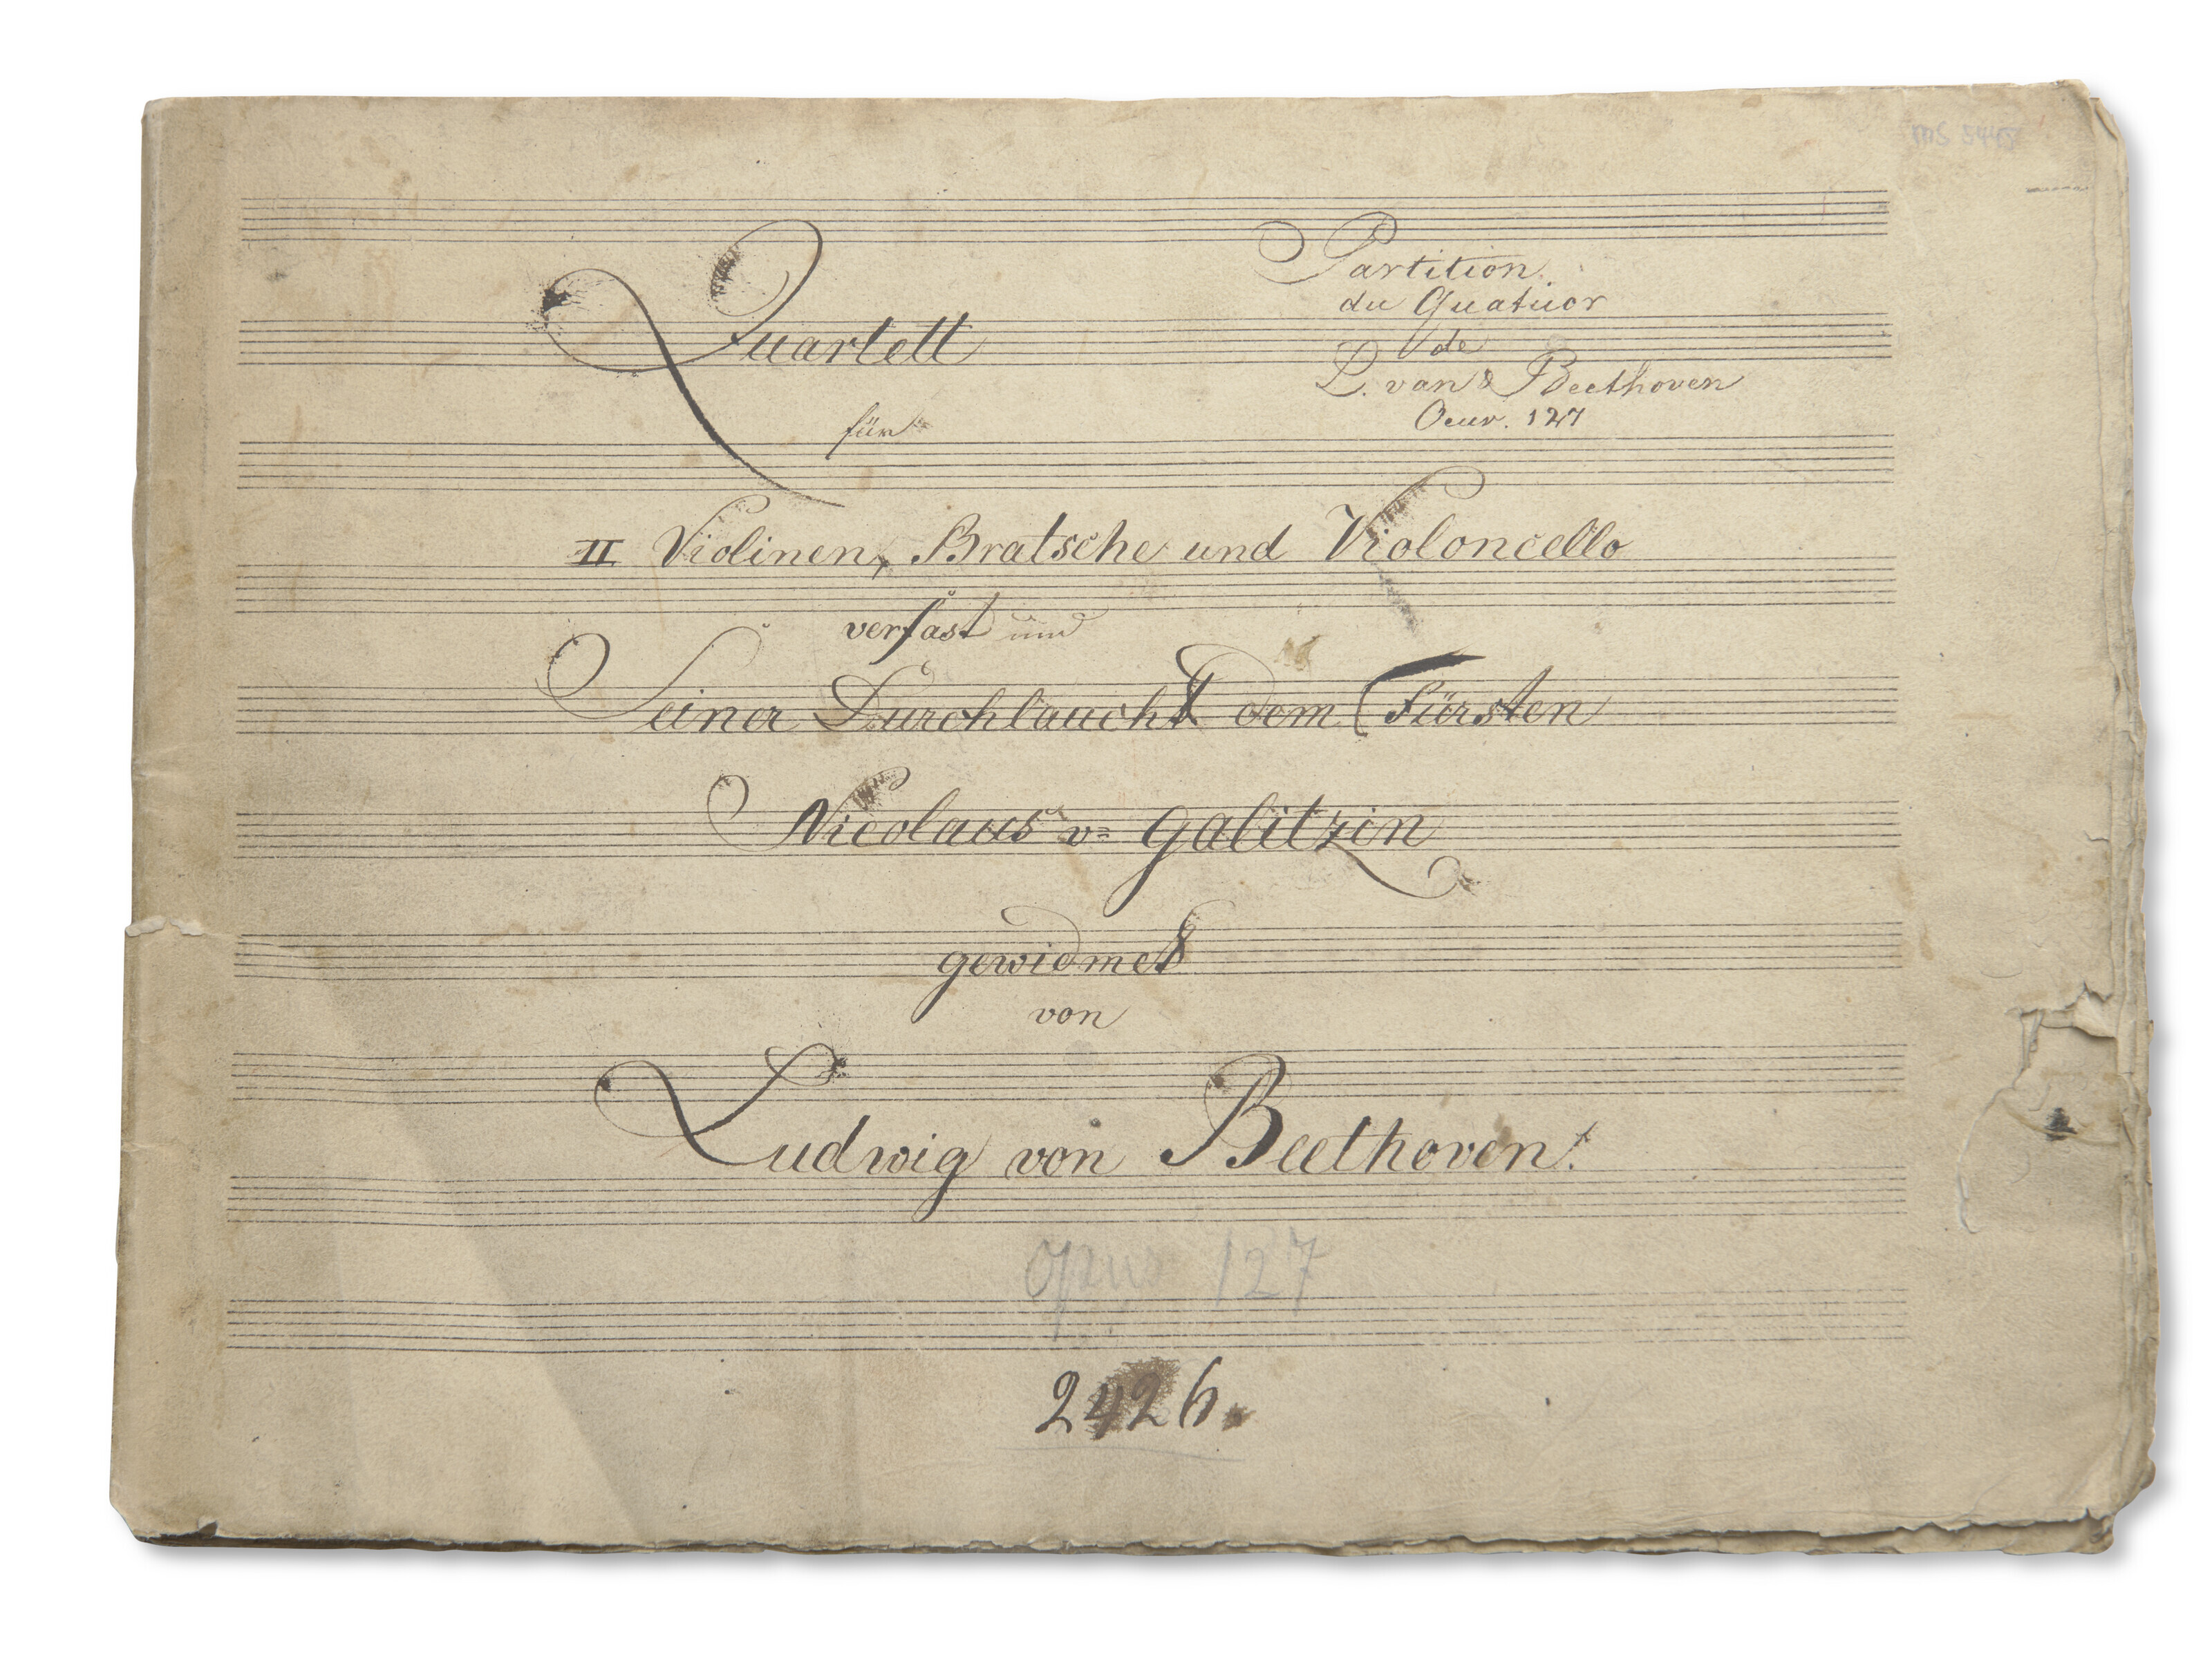 Partition
du Quatuor
de
L. van Beethoven
Oeuv. 127
Quartett
für
II Violinen, Bratsche und Violoncello
verfast und
Seiner Durchlaucht dem Fürsten
Nicolaus v= Galitzin
gewidmet
von
Ludwig von Beethoven.
opus 127
2426.